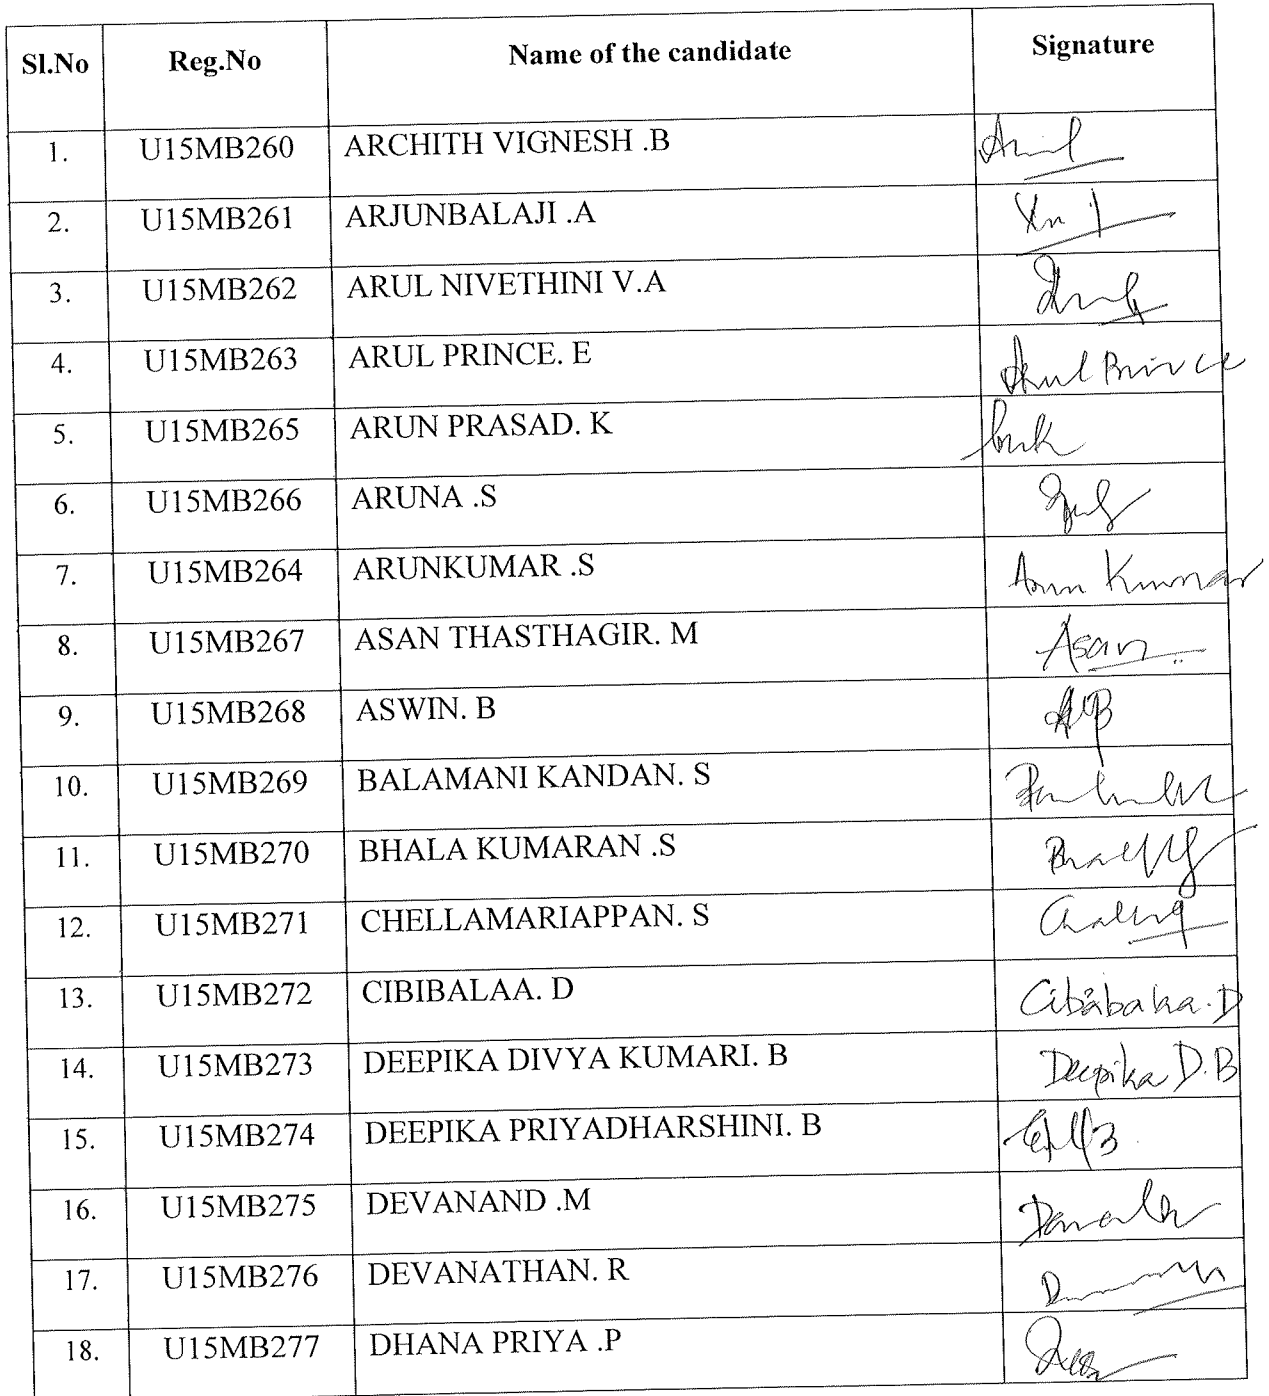 Sl.No Reg.No Name of the candidate Signature
1. U15MB260 ARCHITH VIGNESH .B
2. U15MB261 ARJUNBALAJI .A
3. U15MB262 ARUL NIVETHINI V.A
4. U15MB263 ARUL PRINCE. E Arul Prince
5. U15MB265 ARUN PRASAD. K
6. U15MB266 ARUNA .S
7. U15MB264 ARUNKUMAR .S Arun Kumar
8. U15MB267 ASAN THASTHAGIR. M Asan
9. U15MB268 ASWIN. B
10. U15MB269 BALAMANI KANDAN. S
11. U15MB270 BHALA KUMARAN .S
12. U15MB271 CHELLAMARIAPPAN. S
13. U15MB272 CIBIBALAA. D
14. U15MB273 DEEPIKA DIVYA KUMARI. B Deepika D.B
15. U15MB274 DEEPIKA PRIYADHARSHINI. B
16. U15MB275 DEVANAND .M
17. U15MB276 DEVANATHAN. R
18. U15MB277 DHANA PRIYA .P